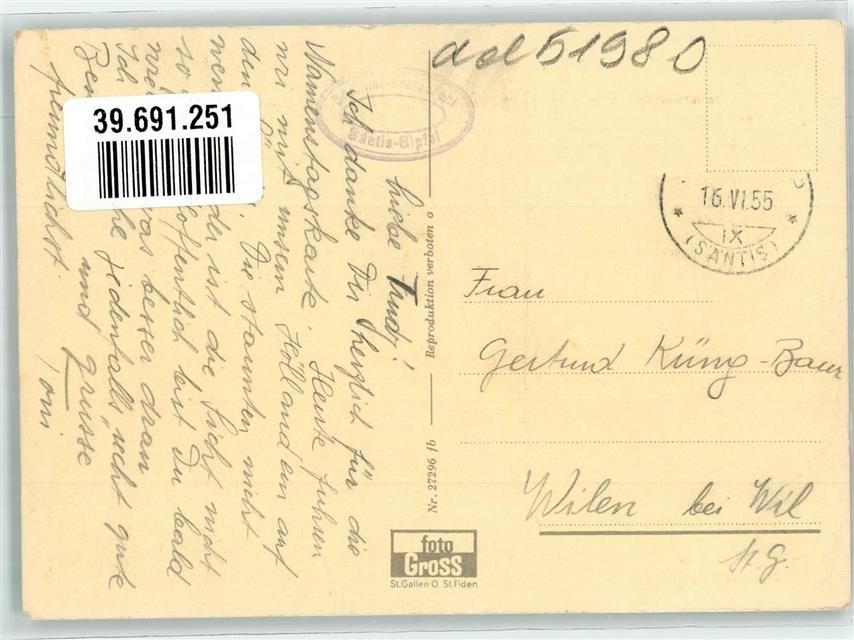 add51980
39.691.251
Säntis-Gipfel
16.VI.55
IX
(SÄNTIS)
Liebe Trudj!
Ich danke Dir herzlich für die
Namenstagskarte. Heute fuhren
wir mit unsern Holländern auf
den Die staunten nicht
wenig. ist die Sicht nicht
so Hoffentlich bist Du bald
was besser dran
Ich jedenfalls recht gute
und grüsse
freundlichst
Toni
Reproduktion verboten o
Nr. 27296 fb
Frau
Gertrud Küng-Baur
Wilen bei Wil
St. G.
foto
GROSS
St.Gallen O St.Fiden